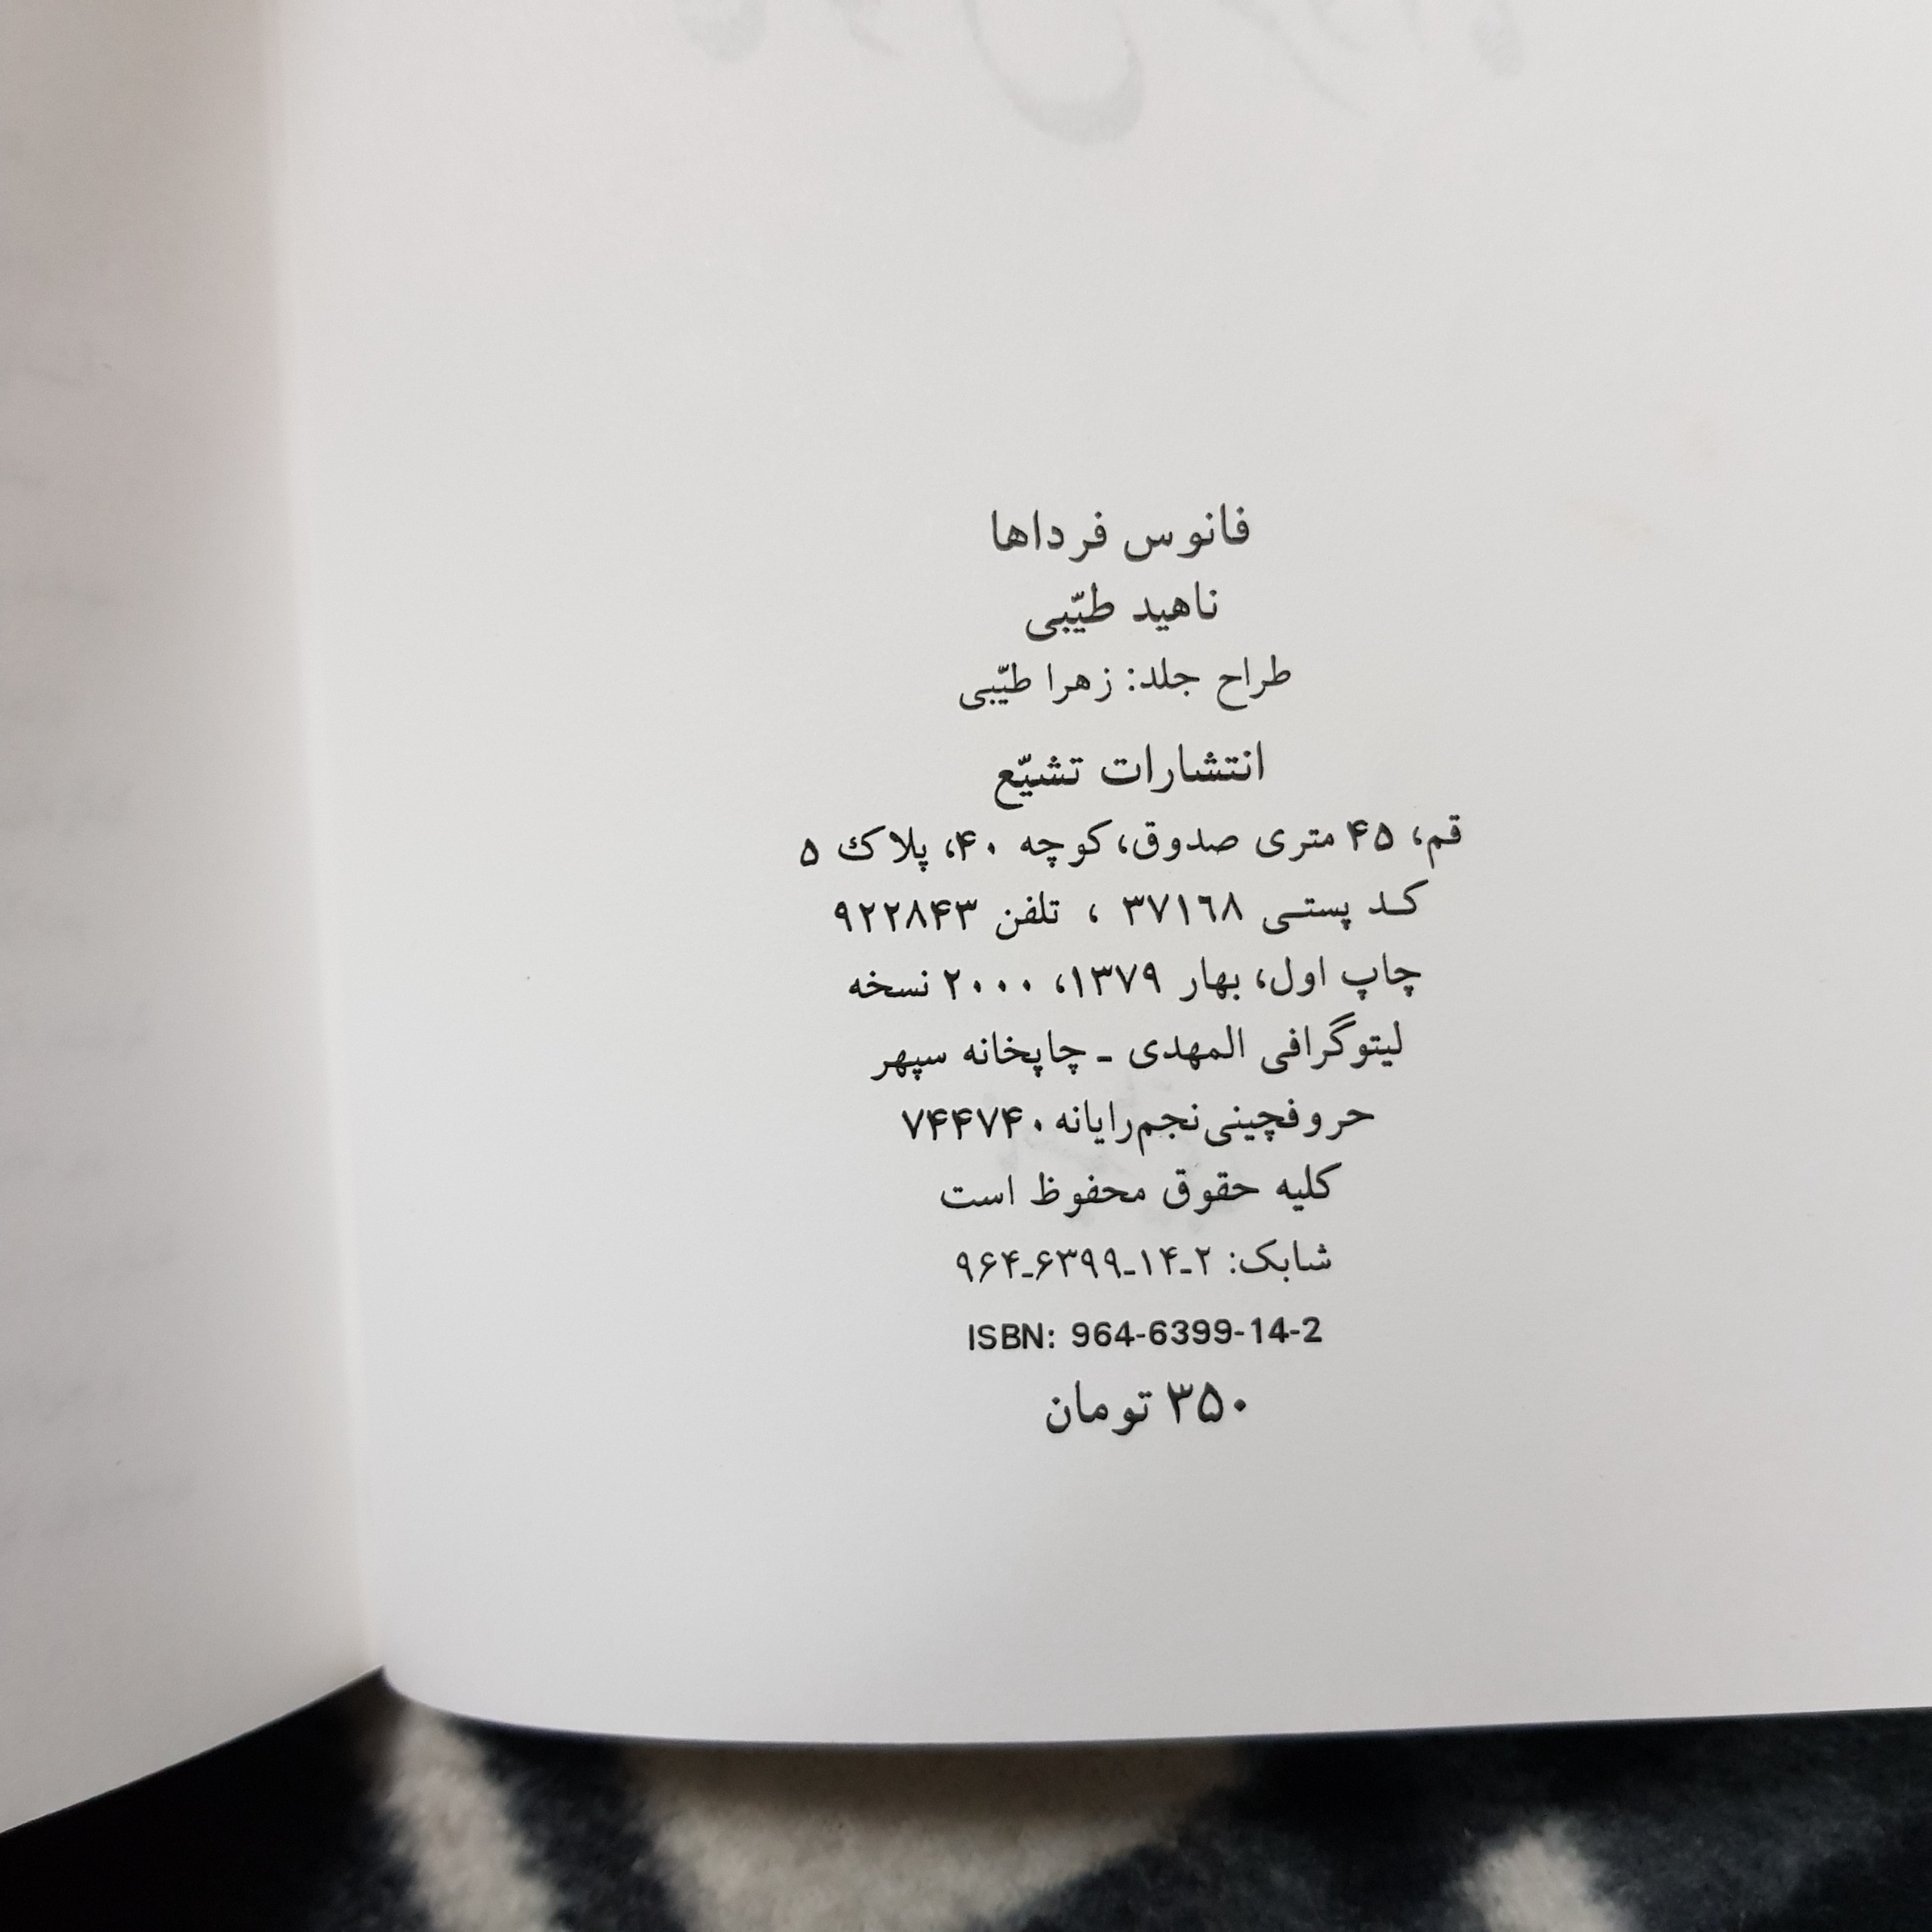 فانوس فرداها
ناهید طیّبی
طراح جلد: زهرا طیّبی
انتشارات تشیّع
قم، ۴۵ متری صدوق، کوچه ۴۰، پلاك ۵
کـد پستـی ۳۷۱٦۸ ، تلفن ۹۲۲۸۴۳
چاپ اول، بهار ۱۳۷۹، ۲۰۰۰ نسخه
لیتوگرافی المهدی ـ چاپخانه سپهر
حروفچینی نجم‌رایانه ۷۴۴۷۴۰
کلیه حقوق محفوظ است
شابک: ۲ـ۱۴ـ۶۳۹۹ـ۹۶۴
ISBN: 964-6399-14-2
۳۵۰ تومان